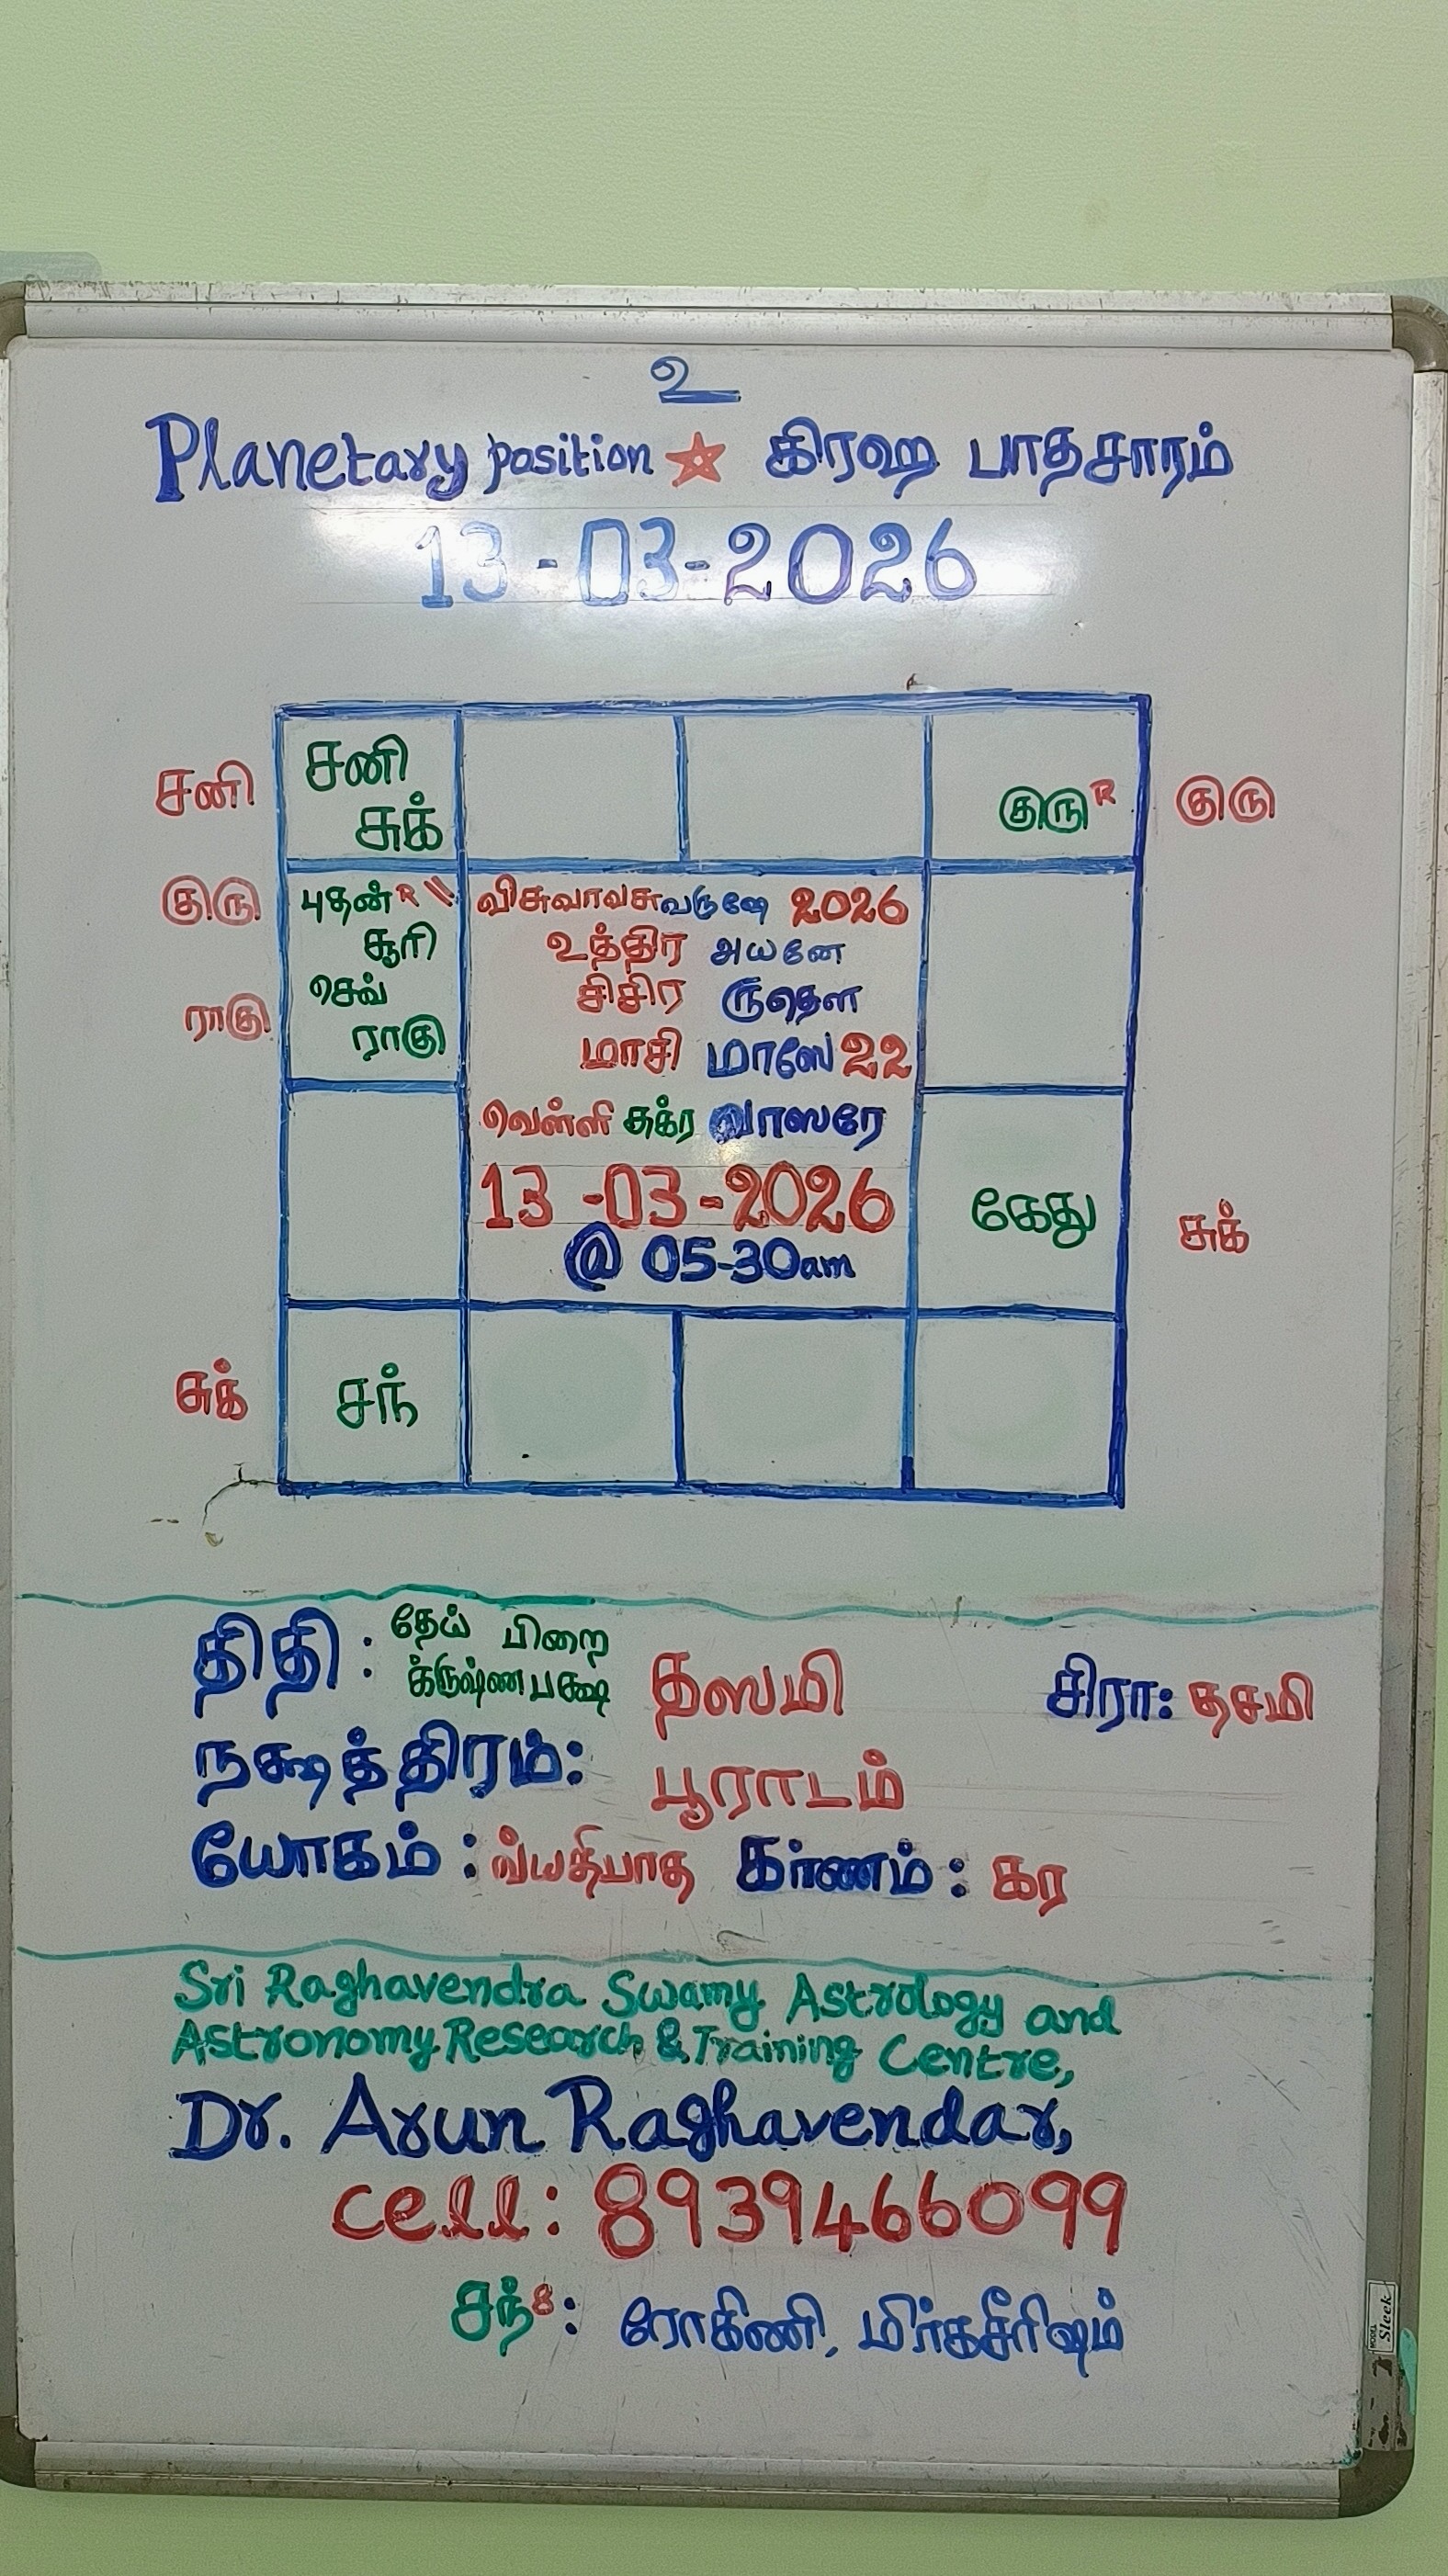 உ
Planetary position ★ கிரஹ பாதசாரம்
13-03-2026
சனி சனி குருR குரு
சுக்
குரு புதன்R \\ விசுவாவசுவருஷே 2026
சூரி உத்திர அயனே
ராகு செவ் சிசிர ருதௌ
ராகு மாசி மாஸே 22
வெள்ளி சுக்ர வாஸரே
13-03-2026 கேது சுக்
@ 05-30am
சுக் சந்
திதி : தேய் பிறை
க்ருஷ்ணபக்ஷ தஸமி சிரா: தசமி
நக்ஷத்திரம்: பூராடம்
யோகம் : வ்யதிபாத கர்ணம் : கர
Sri Raghavendra Swamy Astrology and
Astronomy Research & Training Centre,
Dr. Arun Raghavendar,
cell: 8939466099
சந்8: ரோகிணி, மிர்கசீரிஷம்
Sleek